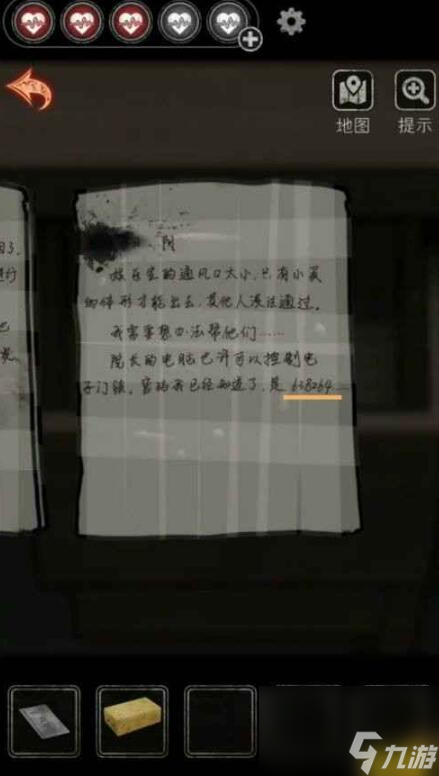 地图
提示
阴
娱乐室的通风口太小,只有小英
的体形才能出去,其他人没法通过。
我需要想办法帮他们……
院长的电脑也许可以控制电
子门锁,密码我已经知道了,是638264
九游